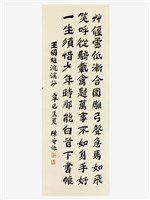 艸偃雲低漸合圍雕弓聲急馬如飛
笑呼從騎載禽歸萬事不如身手好
一生須惜少年時那能白首下書帷
王國維浣溪沙 辛巳孟夏 陳